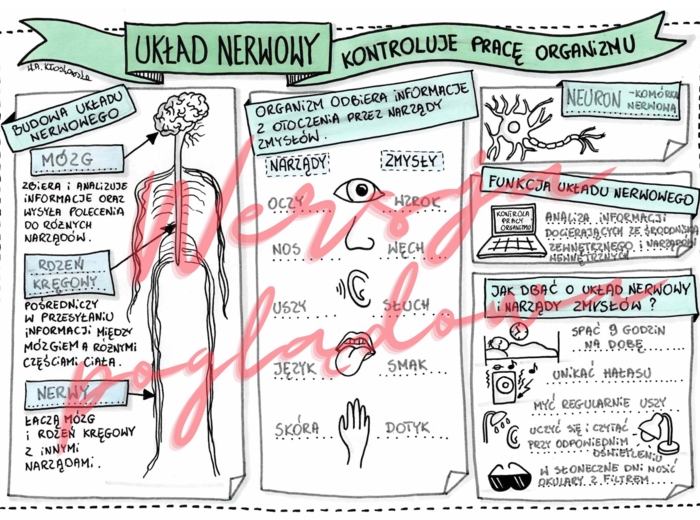 UKŁAD NERWOWY KONTROLUJE PRACĘ ORGANIZMU
BUDOWA UKŁADU
NERWOWEGO
MÓZG
ZBIERA I ANALIZUJE
INFORMACJE ORAZ
WYSYŁA POLECENIA
DO RÓŻNYCH
NARZĄDÓW.
RDZEŃ
KRĘGOWY
POŚREDNICZY
W PRZESYŁANIU
INFORMACJI MIĘDZY
MÓZGIEM A RÓŻNYMI
CZĘŚCIAMI CIAŁA.
NERWY
ŁĄCZĄ MÓZG
I RDZEŃ KRĘGOWY
Z INNYMI
NARZĄDAMI.
ORGANIZM ODBIERA INFORMACJE
Z OTOCZENIA PRZEZ NARZĄDY
ZMYSŁÓW.
NARZĄDY ZMYSŁY
OCZY WZROK
NOS WĘCH
USZY SŁUCH
JĘZYK SMAK
SKÓRA DOTYK
NEURON - KOMÓRKA
NERWOWA
FUNKCJA UKŁADU NERWOWEGO
KONTROLA
PRACY
ORGANIZMU
ANALIZA INFORMACJI
DOCIERAJĄCYCH ZE ŚRODOWISKA
ZEWNĘTRZNEGO I NARZĄDÓW
WEWNĘTRZNYCH
JAK DBAĆ O UKŁAD NERWOWY
I NARZĄDY ZMYSŁÓW?
SPAĆ 9 GODZIN
NA DOBĘ
UNIKAĆ HAŁASU
MYĆ REGULARNIE USZY
UCZYĆ SIĘ I CZYTAĆ
PRZY ODPOWIEDNIM
OŚWIETLENIU
W SŁONECZNE DNI NOSIĆ
OKULARY Z FILTREM
Wersja
poglądowa